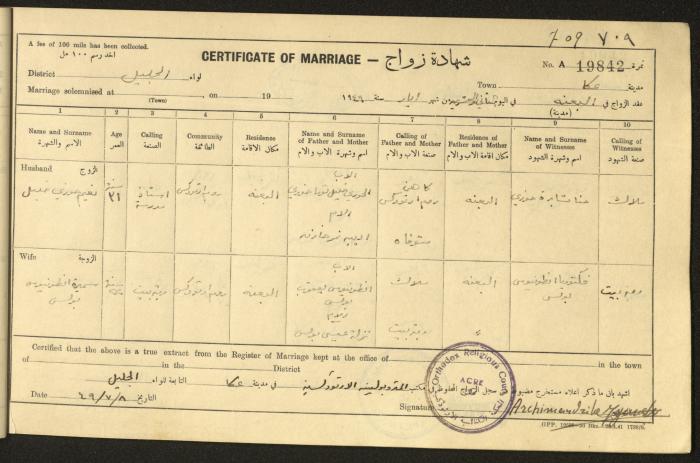 709 ٧٠٩
A fee of 100 mils has been collected.
اخذ رسم ١٠٠ مل
CERTIFICATE OF MARRIAGE — شهادة زواج
No. A 19842 نمرة
District لواء الجليل Town مدينة عكا
Marriage solemnised at , on 19 سنة ١٩٤٩ شهر ايار في اليوم في البعنه عقد الزواج
(Town) (مدينة)
1 2 3 4 5 6 7 8 9 10
Name and Surname الاسم والشهرة
Age العمر
Calling الصنعة
Community الطائفة
Residence مكان الاقامة
Name and Surname of Father and Mother اسم وشهرة الاب والام
Calling of Father and Mother صنعة الاب والام
Residence of Father and Mother مكان اقامة الاب والام
Name and Surname of Witnesses اسم وشهرة الشهود
Calling of Witnesses صنعة الشهود
Husband الزوج
نعيم خوري خليل
سنة ٣١
استاذ مدرسة
روم ارثوذكس
البعنه
الاب
الخوري خليل
الام
كاهن
روم ارثوذكس
متوفاه
البعنه
حنا بشاره خوري
ملاك
Wife الزوجة
سميرة انطونيوس بولس
سنة
ربة بيت
روم ارثوذكس
البعنه
الاب
انطونيوس يعقوب بولس
والام
عيسى بولس
ملاك
ربة بيت
البعنه
"
فكتوريا انطونيوس بولس
ربة بيت
Certified that the above is a true extract from the Register of Marriage kept at the office of in the town
of in the District
اشهد باني ما ذكر اعلاه مستخرج مضبوط سجل الزواج المحفوظ في مكتب الارثوذكسية في مدينة عكا التابعة للواء الجليل
Orthodox Religious Court
ACRE
Date ٤٩/٧/٨ التاريخ
Signature Archimandrite
GPP.